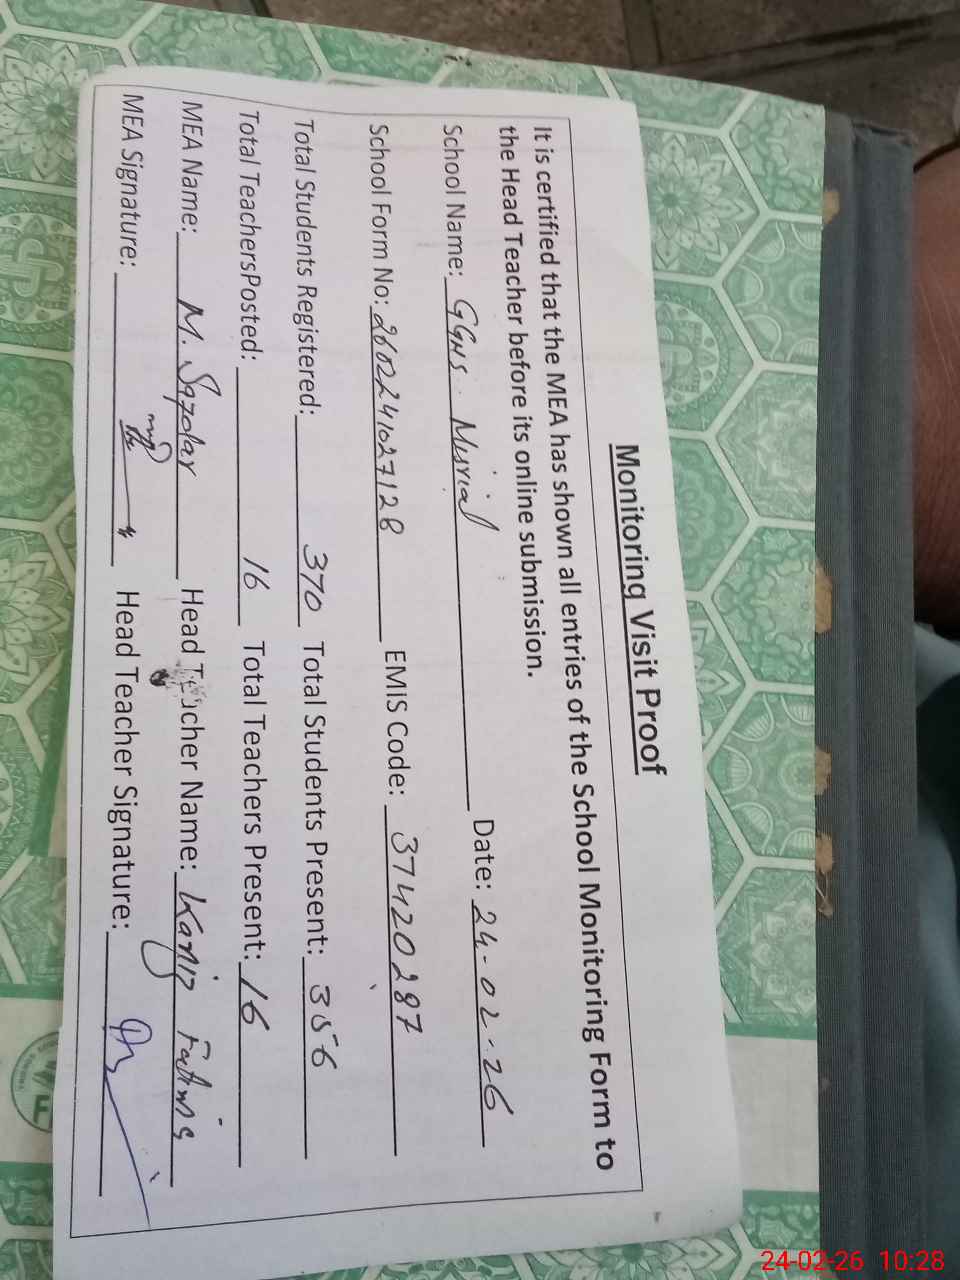 Monitoring Visit Proof
It is certified that the MEA has shown all entries of the School Monitoring Form to
the Head Teacher before its online submission.
School Name: GGHS Murial Date: 24-02-26
School Form No: 260224102712B EMIS Code: 37420287
Total Students Registered: 370 Total Students Present: 356
Total TeachersPosted: 16 Total Teachers Present: 16
MEA Name: M. Head Teacher Name: Kaniz Fatima
MEA Signature: Head Teacher Signature:
24-02-26 10:28